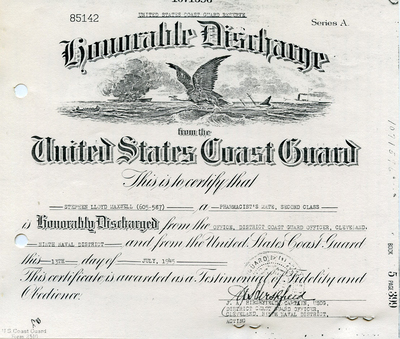 85142
UNITED STATES COAST GUARD RESERVE
Series A.
Honorable Discharge
from the
United States Coast Guard
This is to certify that
STEPHEN LLOYD MAXFELL (605-587) a PHARMACIST'S MATE, SECOND CLASS
is Honorably Discharged from the OFFICE, DISTRICT COAST GUARD OFFICER, CLEVELAND,
NINTH NAVAL DISTRICT and from the United States Coast Guard
this 13TH day of JULY,
This certificate is awarded as a Testimonial of Fidelity and
Obedience.
USCG,
DISTRICT COAST GUARD OFFICER,
CLEVELAND, NINTH NAVAL DISTRICT,
ACTING
BOOK 5 PAGE 399
U S Coast Guard